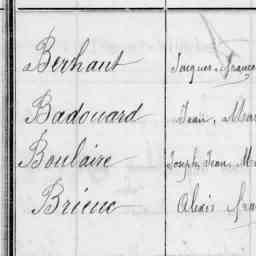 Berhaut Jacques, franço
Badouard Jean, Mar
Boulaire Joseph, Jean, M
Brieuc Alexis fra